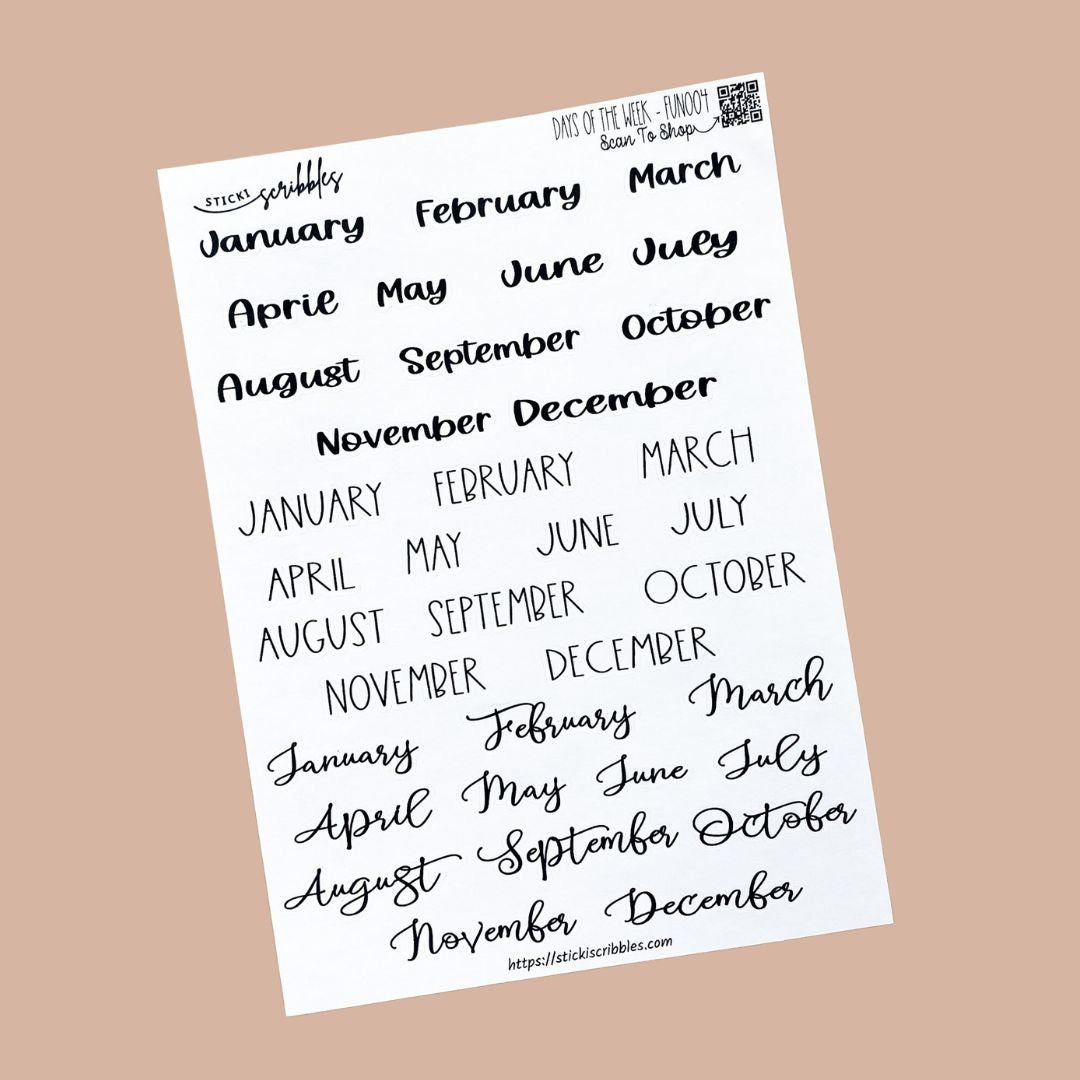 DAYS OF THE WEEK - FUN004
Scan To Shop
STICKI scribbles
January February March
April May June July
August September October
November December
JANUARY FEBRUARY MARCH
APRIL MAY JUNE JULY
AUGUST SEPTEMBER OCTOBER
NOVEMBER DECEMBER
January February March
April May June July
August September October
November December
https://stickiscribbles.com